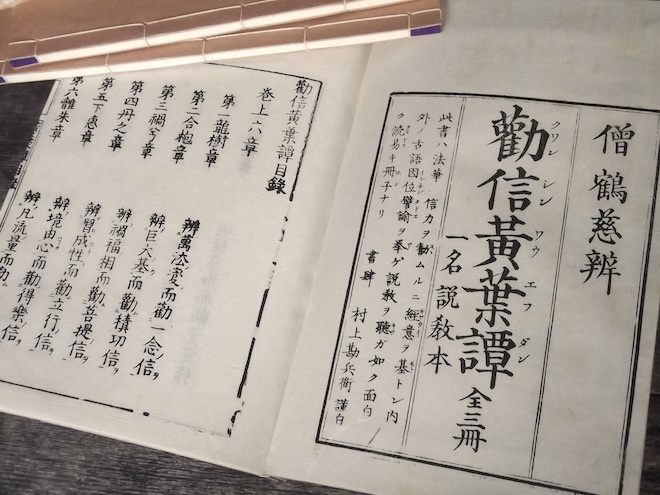 僧 鶴慈辨
勸信黃葉譚 全三冊
クワン シン ワウ エフ ダン
一名説教本
此書ハ法華 信力ヲ勸ムルニ經意ヲ基トシ内
外ノ古語因位譬諭ヲ擧ゲ説教ヲ聽ガ如ク面白
ク読易キ冊子ナリ 書肆 村上勘兵衛 謹白
勸信黃葉譚目錄
巻上六章
第一龍樹章 辨萬法変而勸一念信ヲ
第二合抱章 辨巨大基而勸構功信ヲ
第三禍兮章 辨禍福相而勸菩提信ヲ
第四丹之章 辨習成性而勸立行信ヲ
第五下愚章 辨境由心而勸得樂信ヲ
第六離朱章 辨凡流量而勸